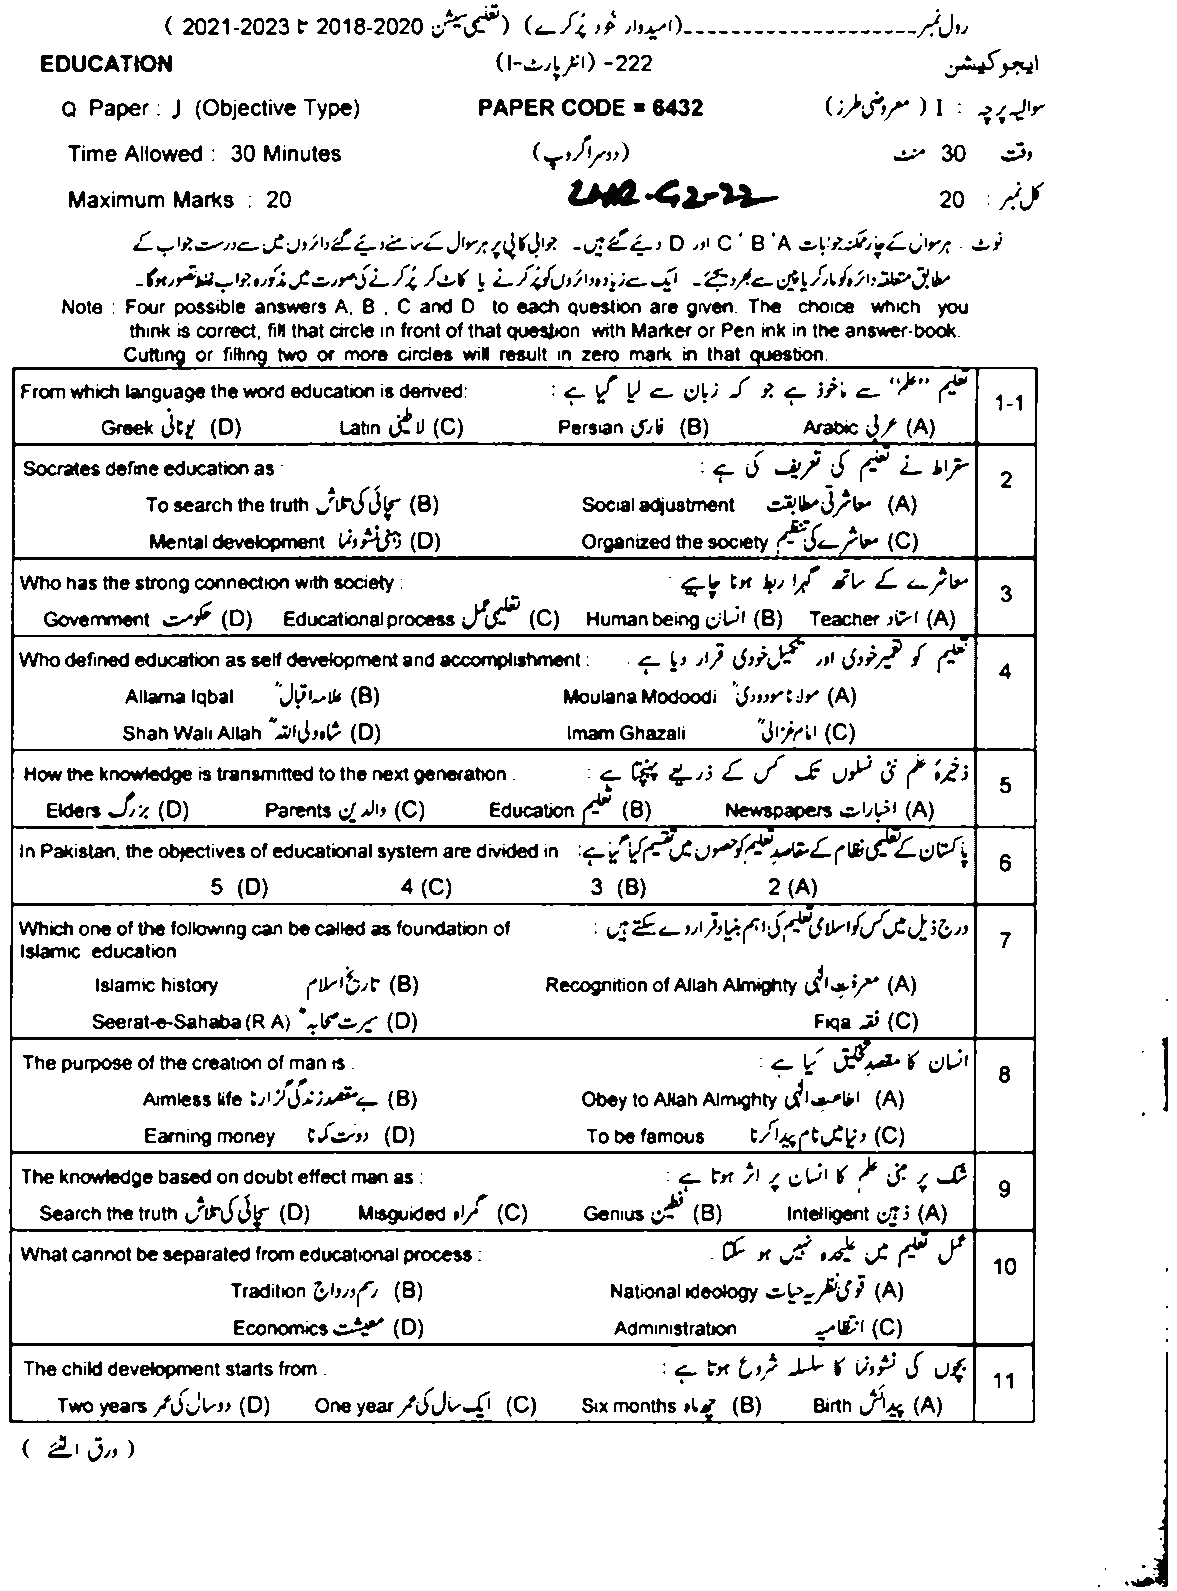 رول نمبر---------------------(امیدوار خود پُر کرے) (تعلیمی سیشن 2020-2018 تا 2023-2021 )
EDUCATION 222- (انٹر پارٹ-I) ایجوکیشن
Q Paper : I (Objective Type) PAPER CODE = 6432 سوالیہ پرچہ : I ( معروضی طرز)
Time Allowed : 30 Minutes (دوسرا گروپ) وقت 30 منٹ
Maximum Marks : 20 LHR-G2-22 کل نمبر : 20
نوٹ : ہر سوال کے چار ممکنہ جوابات A ، B ، C اور D دیئے گئے ہیں۔ جوابی کاپی پر ہر سوال کے سامنے دیئے گئے دائروں میں سے درست جواب کے
مطابق متعلقہ دائرہ کو مارکر یا پین سے بھر دیجئے۔ ایک سے زیادہ دائروں کو پُر کرنے یا کاٹ کر پُر کرنے کی صورت میں مذکورہ جواب غلط تصور ہوگا۔
Note : Four possible answers A, B , C and D to each question are given. The choice which you
think is correct, fill that circle in front of that question with Marker or Pen ink in the answer-book.
Cutting or filling two or more circles will result in zero mark in that question.
From which language the word education is derived: تعلیم "علم" سے ماخوذ ہے جو کہ زبان سے لیا گیا ہے : 1-1
Greek یونانی (D) Latin لاطینی (C) Persian فارسی (B) Arabic عربی (A)
Socrates define education as : سقراط نے تعلیم کی تعریف کی ہے : 2
To search the truth سچائی کی تلاش (B) Social adjustment معاشرتی مطابقت (A)
Mental development ذہنی نشوونما (D) Organized the society معاشرے کی تنظیم (C)
Who has the strong connection with society : معاشرے کے ساتھ گہرا ربط ہونا چاہیے : 3
Government حکومت (D) Educational process تعلیمی عمل (C) Human being انسان (B) Teacher استاد (A)
Who defined education as self development and accomplishment : تعلیم کو تعمیر خودی اور تکمیل خودی قرار دیا ہے : 4
Allama Iqbal علامہ اقبالؒ (B) Moulana Modoodi مولانا مودودیؒ (A)
Shah Wali Allah شاہ ولی اللہؒ (D) Imam Ghazali امام غزالیؒ (C)
How the knowledge is transmitted to the next generation : ذخیرۂ علم نئی نسلوں تک کس کے ذریعے پہنچتا ہے : 5
Elders بزرگ (D) Parents والدین (C) Education تعلیم (B) Newspapers اخبارات (A)
In Pakistan, the objectives of educational system are divided in پاکستان کے تعلیمی نظام کے مقاصدِ تعلیم کو حصوں میں تقسیم کیا گیا ہے: 6
5 (D) 4 (C) 3 (B) 2 (A)
Which one of the following can be called as foundation of درج ذیل میں کس کو اسلامی تعلیم کی اہم بنیاد قرار دے سکتے ہیں : 7
Islamic education
Islamic history تاریخ اسلام (B) Recognition of Allah Almighty معرفتِ الٰہی (A)
Seerat-e-Sahaba (R A) سیرت صحابہؓ (D) Fiqa فقہ (C)
The purpose of the creation of man is : انسان کا مقصدِ تخلیق کیا ہے : 8
Aimless life بے مقصد زندگی گزارنا (B) Obey to Allah Almighty اطاعتِ الٰہی (A)
Earning money دولت کمانا (D) To be famous دنیا میں نام پیدا کرنا (C)
The knowledge based on doubt effect man as : شک پر مبنی علم کا انسان پر اثر ہوتا ہے : 9
Search the truth سچائی کی تلاش (D) Misguided گمراہ (C) Genius فطین (B) Intelligent ذہین (A)
What cannot be separated from educational process : عمل تعلیم میں علیحدہ نہیں ہو سکتا : 10
Tradition رسم و رواج (B) National ideology قومی نظریہ حیات (A)
Economics معیشت (D) Administration انتظامیہ (C)
The child development starts from : بچوں کی نشوونما کا سلسلہ شروع ہوتا ہے : 11
Two years دو سال کی عمر (D) One year ایک سال کی عمر (C) Six months چھ ماہ (B) Birth پیدائش (A)
( ورق الٹئے )